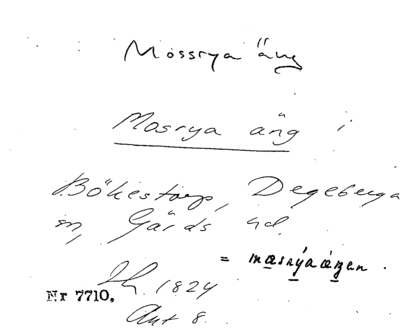 Mossrya äng
Mosrya äng i
Bökestorp, Degeberga
sn, Gärds hd.
= masrýaäŋen.
1824
Nr 7710.
Akt 8.